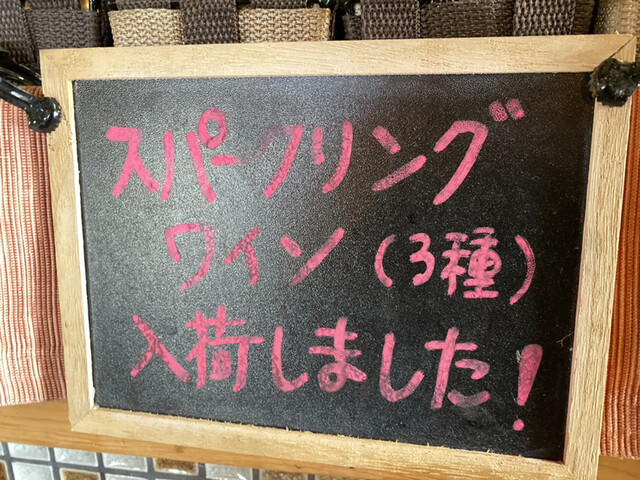 スパークリング
ワイン(3種)
入荷しました!